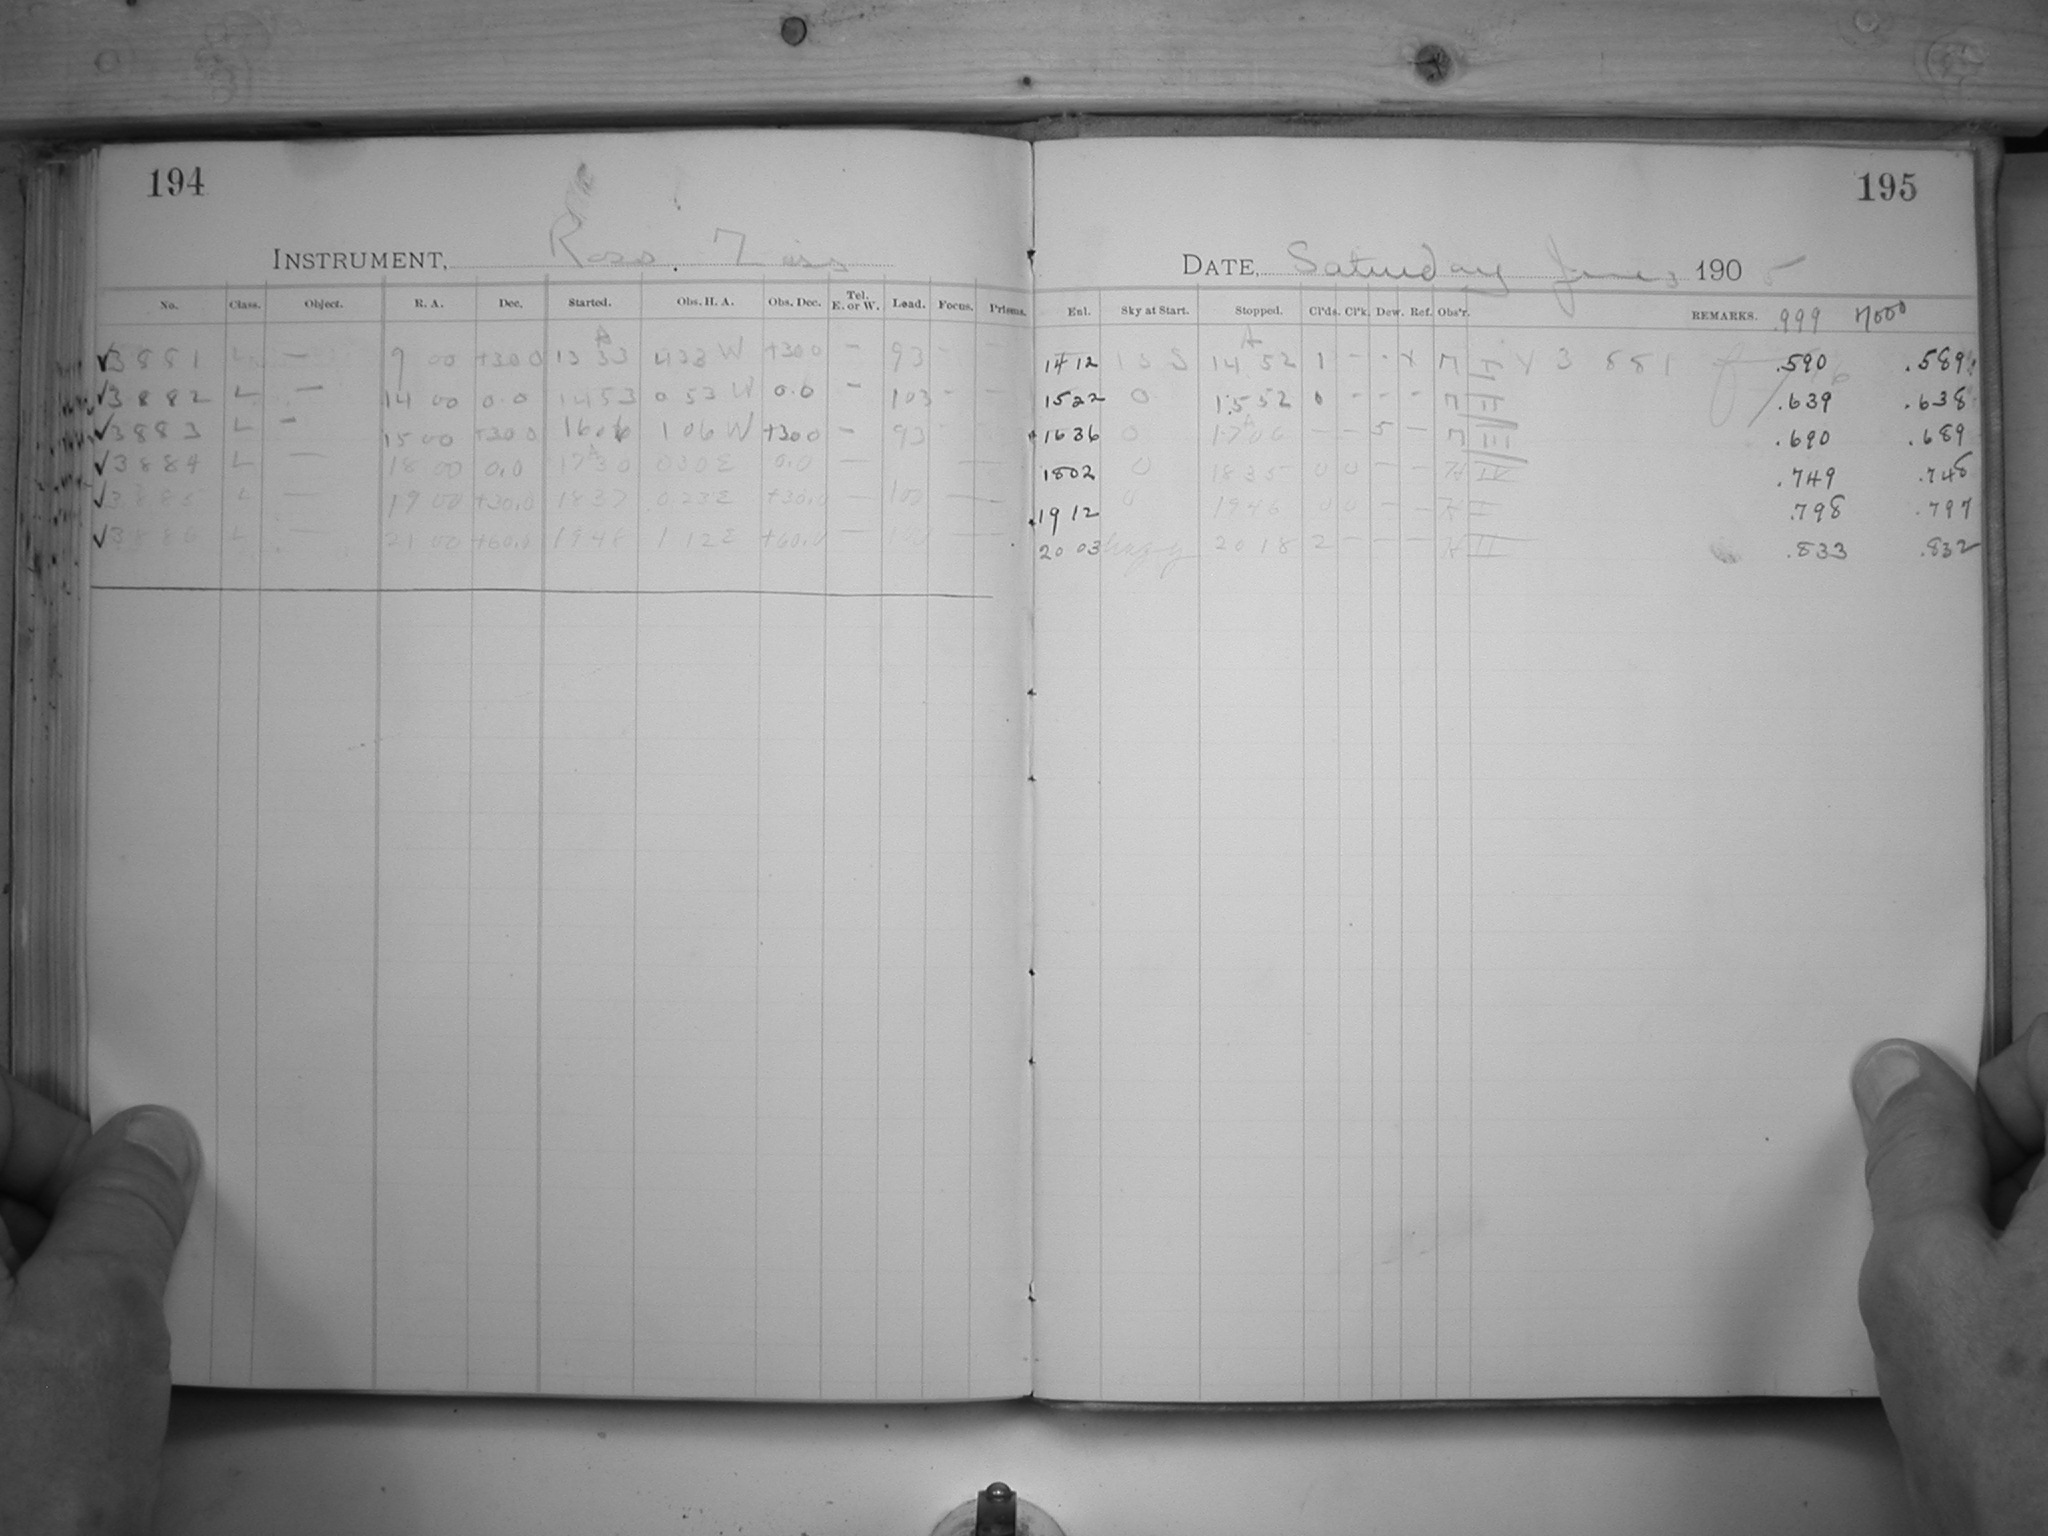 194
INSTRUMENT, Ross. Zeiss
No. Class. Object. R. A. Dec. Started. Obs. H. A. Obs. Dec. Tel. E. or W. Load. Focus. Prisms.
√3881 L — 9 00 +30 0 13 A 33 4 33 W +30 0 – 93 – –
√3882 L — 14 00 0.0 14 53 0 53 W 0.0 – 103 – –
√3883 L – 15 00 +30 0 16 06 1 06 W +30 0 – 93
√3884 L — 18 00 0.0 17 A 30 0 30 E 0.0 —
√3885 L — 19 00 +30.0 1837 0.23 E +30.0 — 100 —
√3886 L — 21 00 +60.0 1948 1 12 E +60.0 — 100 —
195
DATE, Saturday June 3 1905
Enl. Sky at Start. Stopped. Cl'ds. Cl'k. Dew. Ref. Obs'r. REMARKS. .999 Moon
14 12 14 A 52 1 – – x M I 3 881 .590 .589
15 22 0 15 52 0 – – – M II .639 .638
16 36 0 17 A 06 – – 5 – M III .690 .689
1802 0 1835 0 0 – – H IV .749 .748
19 12 0 1946 0 0 – – H .798 .797
20 03 hazy 20 18 2 – – – H II .833 .832